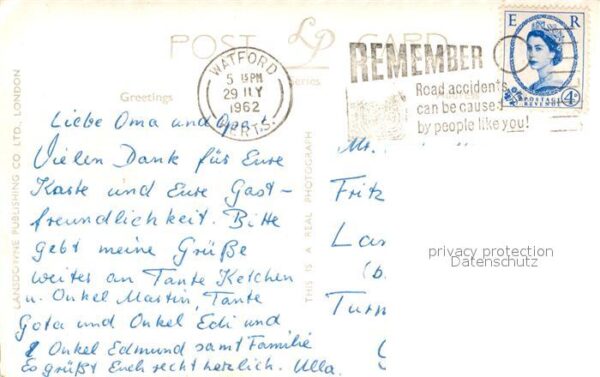 POST CARD
LP
Series
Greetings
WATFORD
5 15 PM
29 JLY
1962
HERTS.
REMEMBER
Road accidents
can be caused
by people like you!
E R
POSTAGE
REVENUE
4D
LANSDOWNE PUBLISHING CO LTD., LONDON
THIS IS A REAL PHOTOGRAPH
Liebe Oma und Opa!
Vielen Dank für Eure
Karte und Eure Gast-
freundlichkeit. Bitte
gebt meine Grüße
weiter an Tante Ketchen
u. Onkel Martin, Tante
Gota und Onkel Edi und
Onkel Edmund samt Familie
Es grüßt Euch recht herzlich. Ulla.
Fritz
Lan
(b.
Turn
privacy protection
Datenschutz